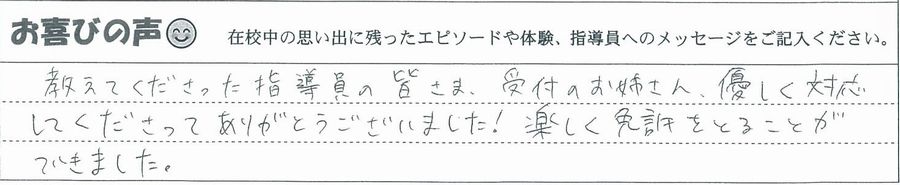 お喜びの声 在校中の思い出に残ったエピソードや体験、指導員へのメッセージをご記入ください。
教えてくださった指導員の皆さま、受付のお姉さん、優しく対応
してくださってありがとうございました!楽しく免許をとることが
できました。